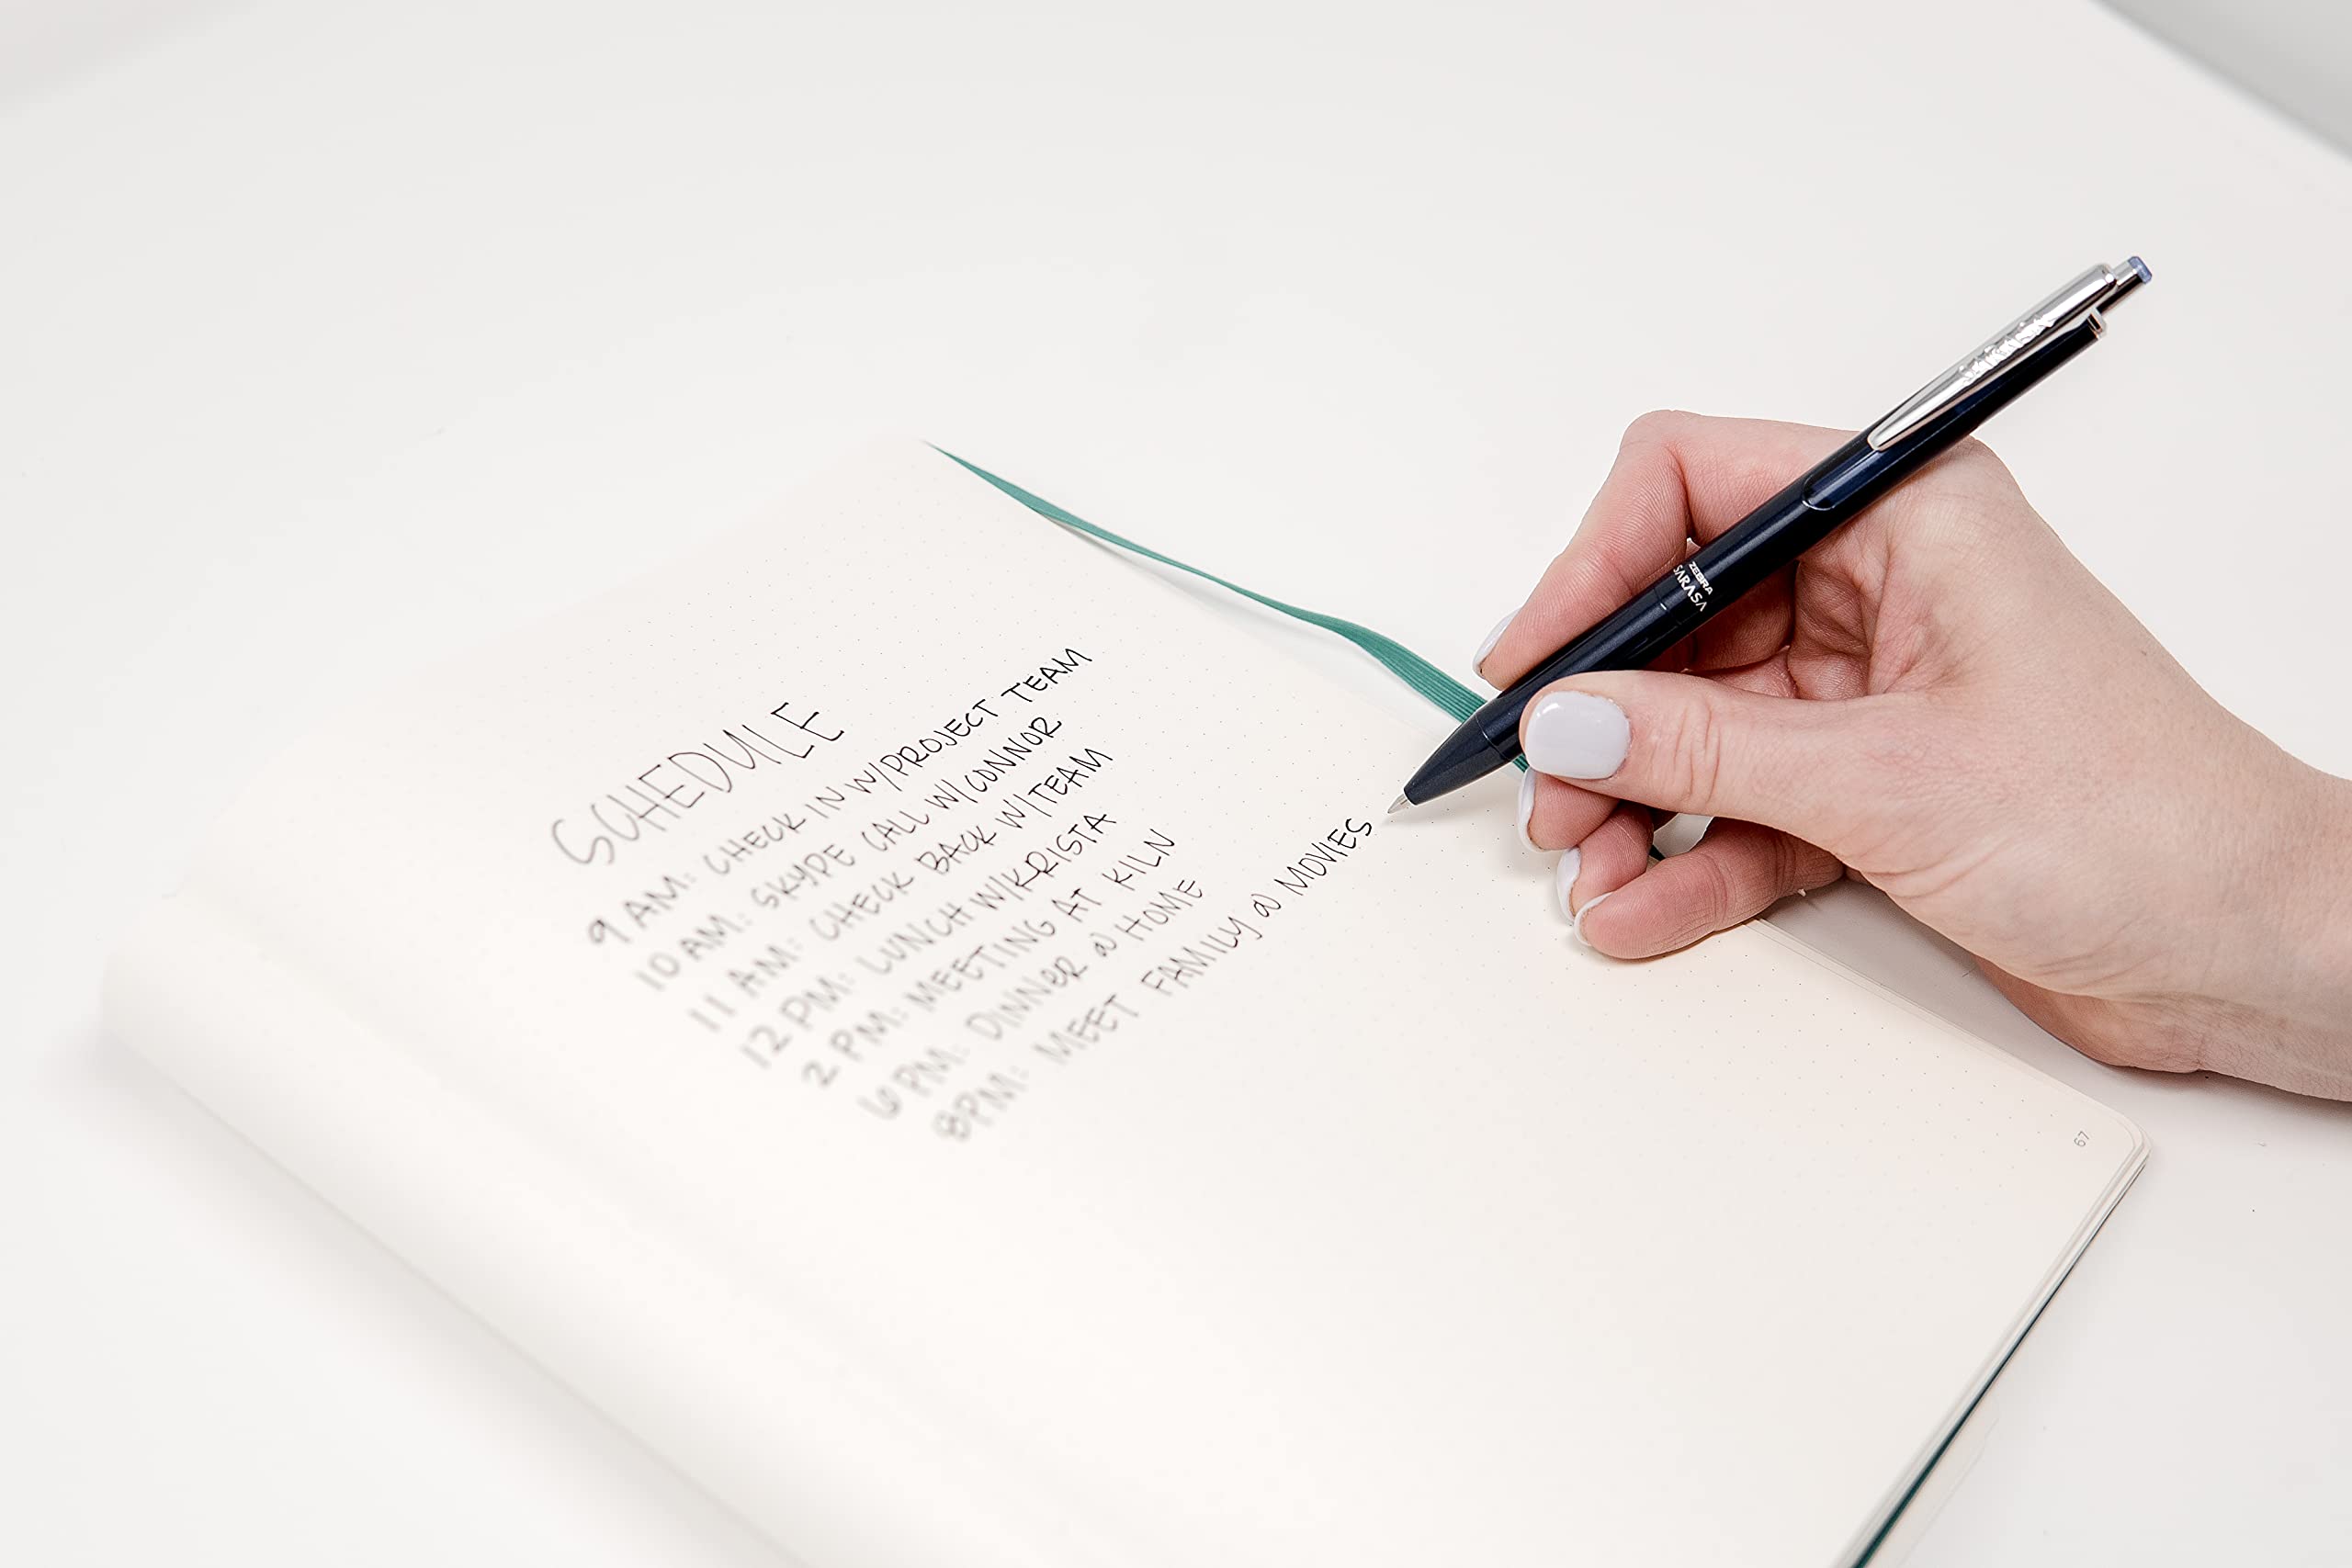 SCHEDULE
9 AM: CHECK IN W/PROJECT TEAM
10 AM: SKYPE CALL W/CONNOR
11 AM: CHECK BACK W/TEAM
12 PM: LUNCH W/KRISTA
2 PM: MEETING AT KILN
6 PM: DINNER @ HOME
8PM: MEET FAMILY @ MOVIES
ZEBRA
SARASA
67